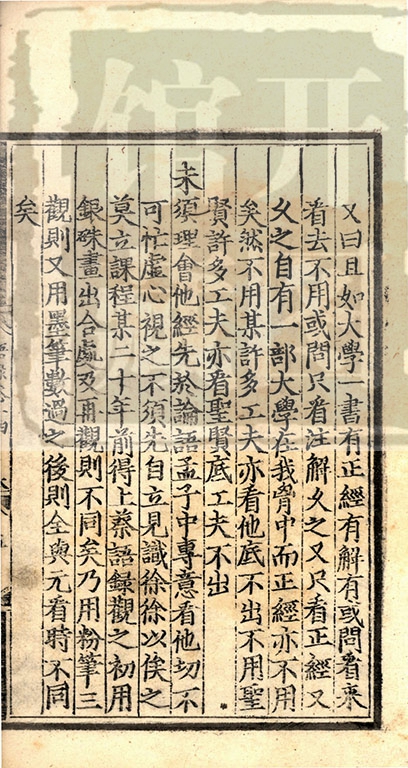 又曰且如大學一書有正經有解有或問看來
看去不用或問只看注解久之又只看正經又
久之自有一部大學在我胷中而正經亦不用
矣然不用某許多工夫亦看他底不出不用聖
賢許多工夫亦看聖賢底工夫不出
未須理會他經先於論語孟子中專意看他切不
可忙虛心視之不須先自立見識徐徐以俟之
莫立課程某二十年前得上蔡語録觀之初用
銀硃畫出合處及再觀則不同矣乃用粉筆三
觀則又用墨筆數過之後則全與元看時不同
矣